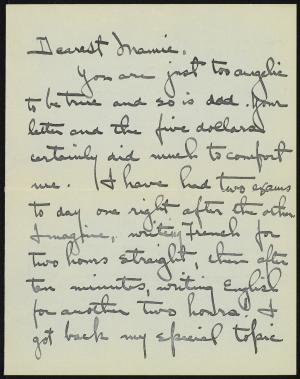 Dearest Mamie,
You are just too angelic
to be true and so is dad. Your
letter and the five dollars
certainly did much to comfort
me. I have had two exams
to day one right after the other
Imagine, writing French for
two hours straight, then after
ten minutes, writing English
for another two hours! I
got back my special topic